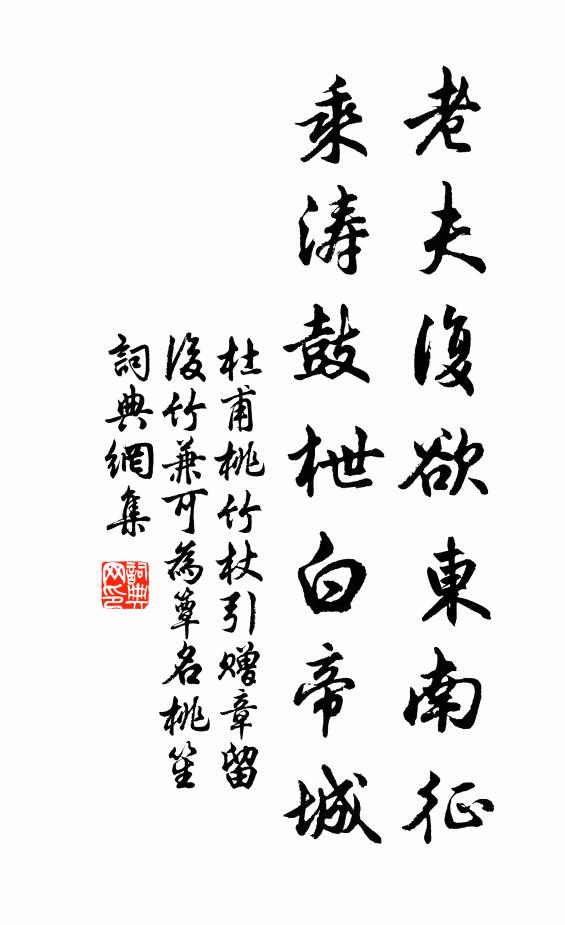 老夫復欲東南征
乘濤鼓枻白帝城
杜甫桃竹杖引赠章留
後竹兼可為簟名桃笙
詞典網集
詞典网印